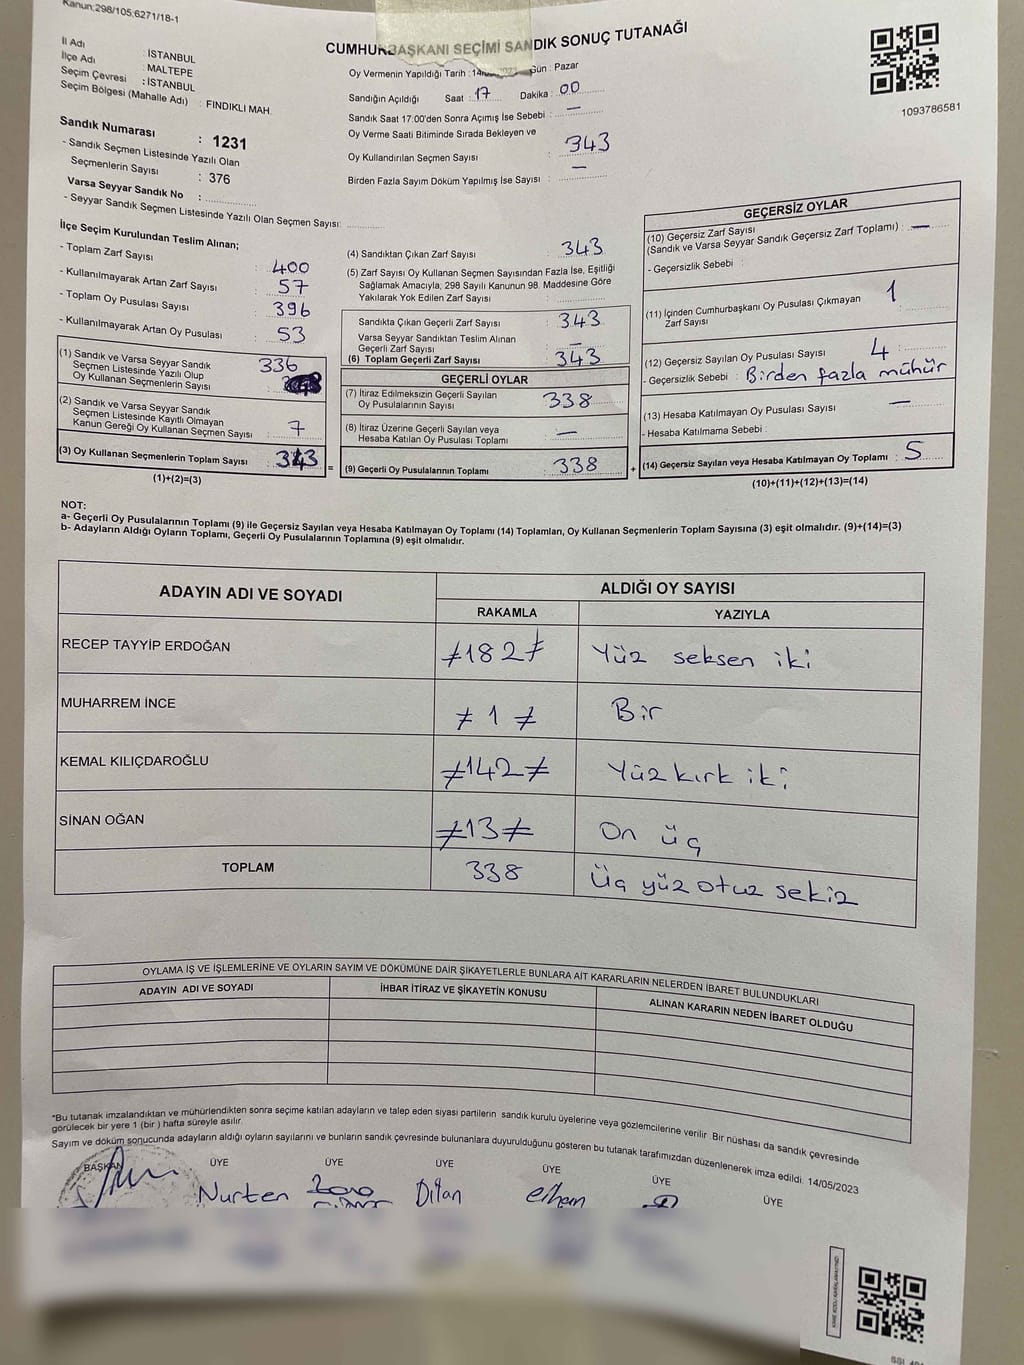 Kanun;298/105;6271/18-1
CUMHURBAŞKANI SEÇİMİ SANDIK SONUÇ TUTANAĞI
İl Adı : İSTANBUL
İlçe Adı : MALTEPE
Seçim Çevresi : İSTANBUL
Seçim Bölgesi (Mahalle Adı) : FINDIKLI MAH.
Oy Vermenin Yapıldığı Tarih : 14 Gün : Pazar
Sandığın Açıldığı Saat : 17 Dakika : 00
Sandık Saat 17:00'den Sonra Açımış İse Sebebi : —
Oy Verme Saati Bitiminde Sırada Bekleyen ve
Oy Kullandırılan Seçmen Sayısı : 343
Birden Fazla Sayım Döküm Yapılmış İse Sayısı : —
1093786581
Sandık Numarası : 1231
- Sandık Seçmen Listesinde Yazılı Olan
Seçmenlerin Sayısı : 376
Varsa Seyyar Sandık No :
- Seyyar Sandık Seçmen Listesinde Yazılı Olan Seçmen Sayısı:
İlçe Seçim Kurulundan Teslim Alınan;
- Toplam Zarf Sayısı : 400
- Kullanılmayarak Artan Zarf Sayısı : 57
- Toplam Oy Pusulası Sayısı : 396
- Kullanılmayarak Artan Oy Pusulası : 53
(1) Sandık ve Varsa Seyyar Sandık
Seçmen Listesinde Yazılı Olup
Oy Kullanan Seçmenlerin Sayısı : 336
(2) Sandık ve Varsa Seyyar Sandık
Seçmen Listesinde Kayıtlı Olmayan
Kanun Gereği Oy Kullanan Seçmen Sayısı : 7
(3) Oy Kullanan Seçmenlerin Toplam Sayısı : 343
(1)+(2)=(3)
(4) Sandıktan Çıkan Zarf Sayısı : 343
(5) Zarf Sayısı Oy Kullanan Seçmen Sayısından Fazla İse, Eşitliği
Sağlamak Amacıyla; 298 Sayılı Kanunun 98. Maddesine Göre
Yakılarak Yok Edilen Zarf Sayısı :
Sandıkta Çıkan Geçerli Zarf Sayısı : 343
Varsa Seyyar Sandıktan Teslim Alınan
Geçerli Zarf Sayısı : —
(6) Toplam Geçerli Zarf Sayısı 343
GEÇERLİ OYLAR
(7) İtiraz Edilmeksizin Geçerli Sayılan
Oy Pusulalarının Sayısı : 338
(8) İtiraz Üzerine Geçerli Sayılan veya
Hesaba Katılan Oy Pusulası Toplamı : —
= (9) Geçerli Oy Pusulalarının Toplamı : 338 +
GEÇERSİZ OYLAR
(10) Geçersiz Zarf Sayısı
(Sandık ve Varsa Seyyar Sandık Geçersiz Zarf Toplamı) : —
- Geçersizlik Sebebi :
(11) İçinden Cumhurbaşkanı Oy Pusulası Çıkmayan
Zarf Sayısı : 1
(12) Geçersiz Sayılan Oy Pusulası Sayısı : 4
- Geçersizlik Sebebi : Birden fazla mühür
(13) Hesaba Katılmayan Oy Pusulası Sayısı : —
- Hesaba Katılmama Sebebi :
(14) Geçersiz Sayılan veya Hesaba Katılmayan Oy Toplamı : 5
(10)+(11)+(12)+(13)=(14)
NOT:
a- Geçerli Oy Pusulalarının Toplamı (9) ile Geçersiz Sayılan veya Hesaba Katılmayan Oy Toplamı (14) Toplamları, Oy Kullanan Seçmenlerin Toplam Sayısına (3) eşit olmalıdır. (9)+(14)=(3)
b- Adayların Aldığı Oyların Toplamı, Geçerli Oy Pusulalarının Toplamına (9) eşit olmalıdır.
ADAYIN ADI VE SOYADI ALDIĞI OY SAYISI
RAKAMLA YAZIYLA
RECEP TAYYİP ERDOĞAN ≠182≠ Yüz seksen iki
MUHARREM İNCE ≠1≠ Bir
KEMAL KILIÇDAROĞLU ≠142≠ Yüz kırk iki
SİNAN OĞAN ≠13≠ On üç
TOPLAM 338 Üç yüz otuz sekiz
OYLAMA İŞ VE İŞLEMLERİNE VE OYLARIN SAYIM VE DÖKÜMÜNE DAİR ŞİKAYETLERLE BUNLARA AİT KARARLARIN NELERDEN İBARET BULUNDUKLARI
ADAYIN ADI VE SOYADI İHBAR İTİRAZ VE ŞİKAYETİN KONUSU ALINAN KARARIN NEDEN İBARET OLDUĞU
*Bu tutanak imzalandıktan ve mühürlendikten sonra seçime katılan adayların ve talep eden siyasi partilerin sandık kurulu üyelerine veya gözlemcilerine verilir. Bir nüshası da sandık çevresinde
görülecek bir yere 1 (bir) hafta süreyle asılır.
Sayım ve döküm sonucunda adayların aldığı oyların sayılarını ve bunların sandık çevresinde bulunanlara duyurulduğunu gösteren bu tutanak tarafımızdan düzenlenerek imza edildi. 14/05/2023
BAŞKAN ÜYE ÜYE ÜYE ÜYE ÜYE ÜYE
Nurten Dilan erhem